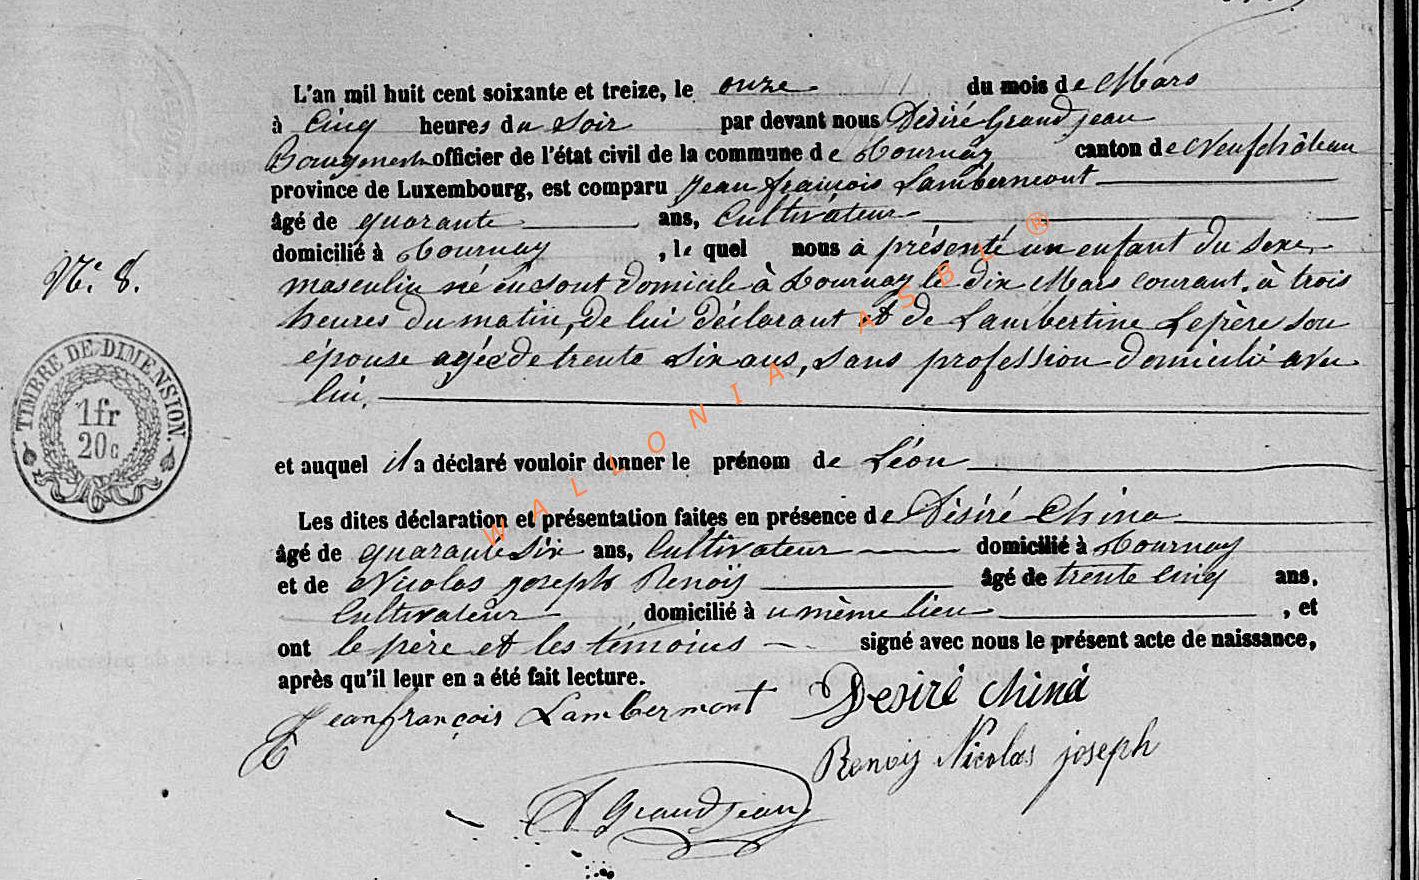 L'an mil huit cent soixante et treize, le onze du mois de Mars
à Cinq heures du Soir par devant nous Désiré Grandjean
Bourgmestre officier de l'état civil de la commune de Tournay canton de Neufchâteau
province de Luxembourg, est comparu Jean françois Lambermont
âgé de quarante ans, Cultivateur
domicilié à Tournay, le quel nous a présenté un enfant du sexe
Nº 8.
masculin né en sont domicile à Tournay le dix Mars courant, à trois
heures du matin, de lui déclarant et de Lambertine Lepère son
épouse agée de trente six ans, sans profession domicilié avec
lui.
TIMBRE DE DIMENSION.
1fr
20c
et auquel il a déclaré vouloir donner le prénom de Léon
Les dites déclaration et présentation faites en présence de Désiré China
âgé de quarante six ans, Cultivateur domicilié à Tournay
et de Nicolas joseph Renoij âgé de trente cinq ans,
Cultivateur domicilié à u même lieu, et
ont le père et les témoins signé avec nous le présent acte de naissance,
après qu'il leur en a été fait lecture.
Jean françois Lambermont Desiré China
Renoij Nicolas joseph
D Grandjean
WALLONIA ASBL ®